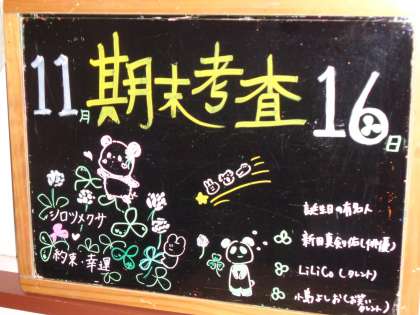 11月 期末考査 16日
シロツメクサ
約束・幸運
誕生日の有名人
新田真剣佑(俳優)
LiLiCo(タレント)
小島よしお(お笑いタレント)